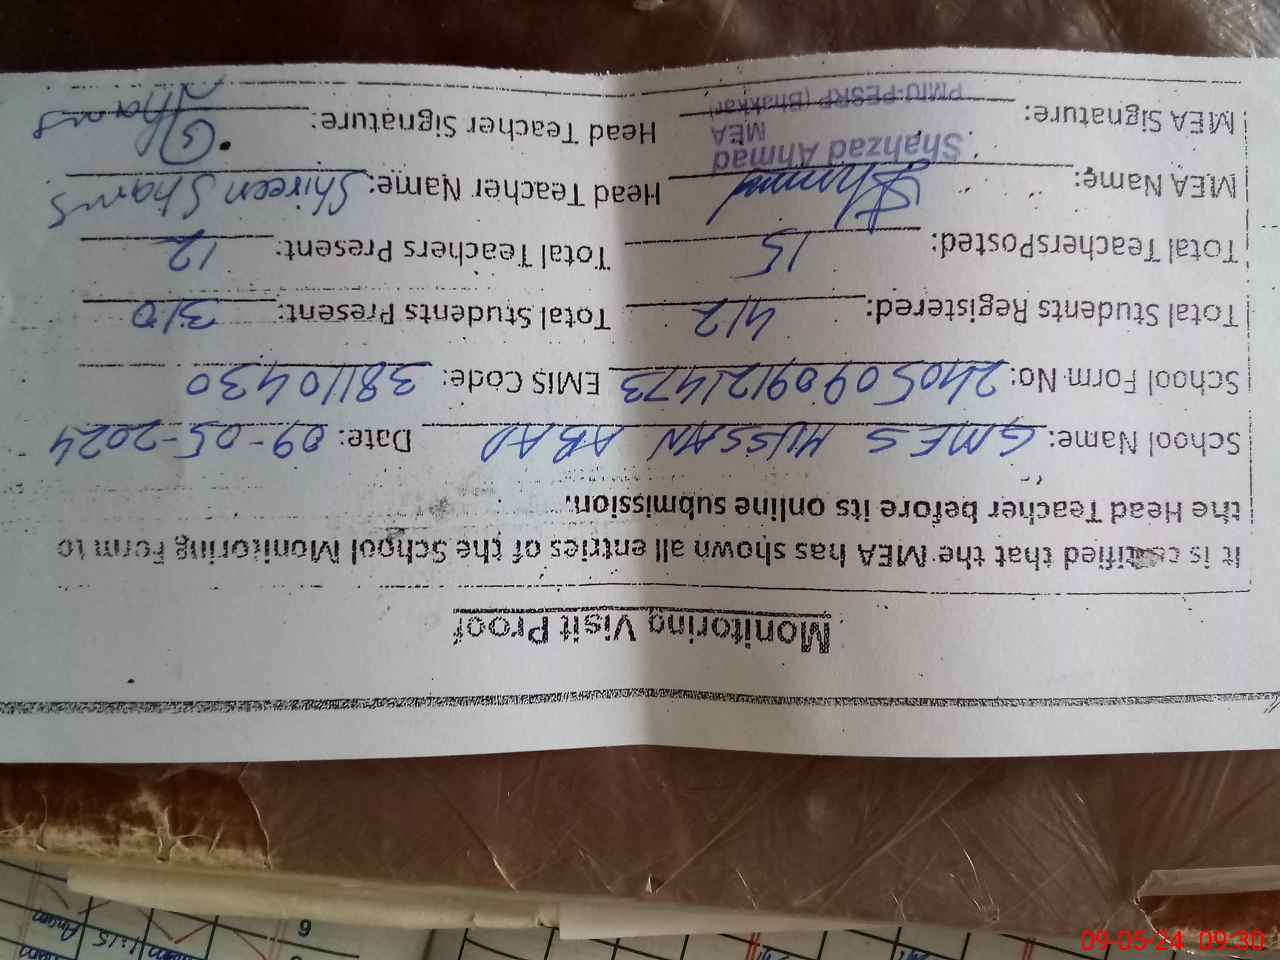 Monitoring Visit Proof
It is certified that the MEA has shown all entries of the School Monitoring Form to
the Head Teacher before its online submission.
School Name: GMES HUSSAN ABAD Date: 09-05-2024
School Form No: 24050909121473 EMIS Code: 38110430
Total Students Registered: 412 Total Students Present: 310
Total TeachersPosted: 15 Total Teachers Present: 12
MEA Name: Head Teacher Name: Shireen Shams
Shahzad Ahmad
MEA
PMIU-PESRP (Bhakkar)
MEA Signature: Head Teacher Signature: Shams
09-05-24 09:30
6
11:15
Anam